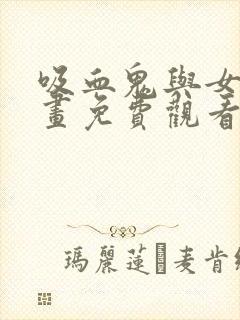 吸血鬼與女
畫免費觀看
瑪麗蓮麥肯